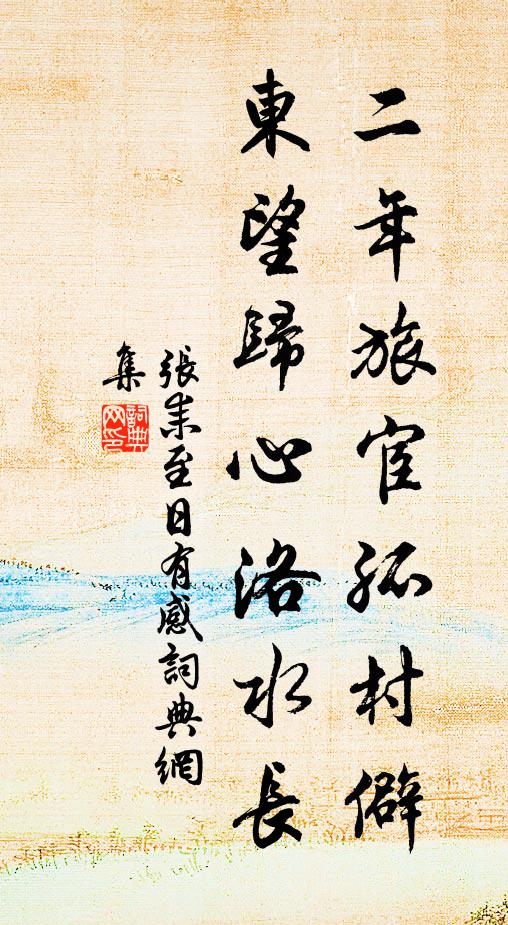 二年旅宦孤村僻
東望歸心洛水長
張耒至日有感詞典網
集
詞典
网印